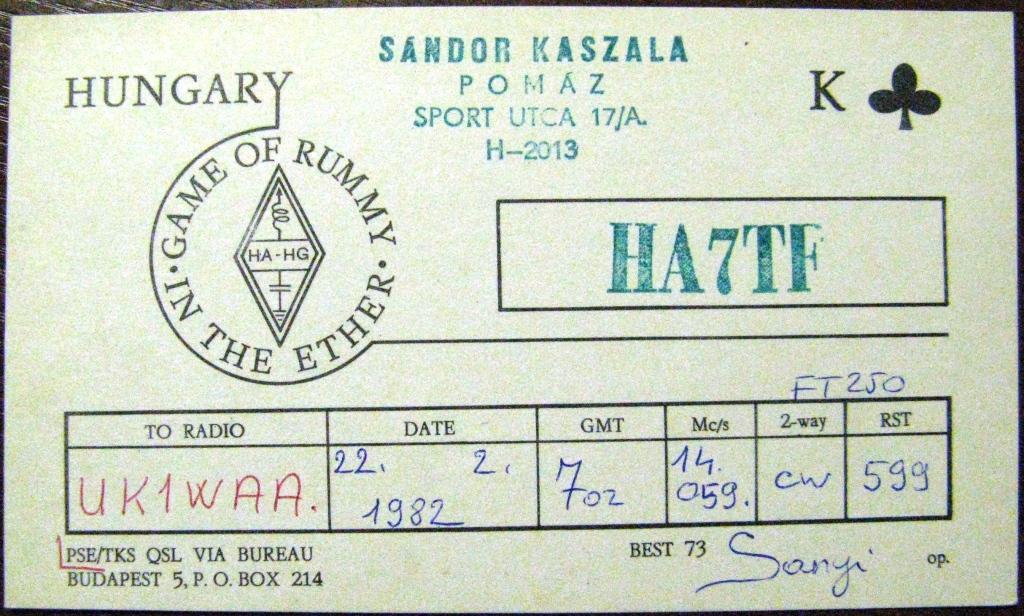 SÁNDOR KASZALA
HUNGARY
POMÁZ
K
SPORT UTCA 17/A.
H-2013
GAME OF RUMMY
IN THE ETHER
HA-HG
HA7TF
FT250
TO RADIO DATE GMT Mc/s 2-way RST
UK1WAA. 22. 2. 1982 702 14.059. CW 599
PSE/TKS QSL VIA BUREAU
BUDAPEST 5, P. O. BOX 214
BEST 73 Sanyi op.